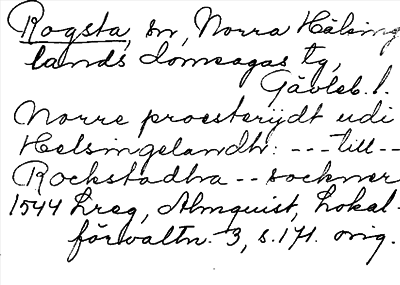 Rogsta, sn, Norra Hälsing
lands domsagas tg,
Gävleb. l.
Norre proesterijdt udi
Helsingelandh: --- till --
Rockstadha -- sockner
1544 Lreg, Almquist, Lokal-
förvaltn. 3, s. 171. orig.